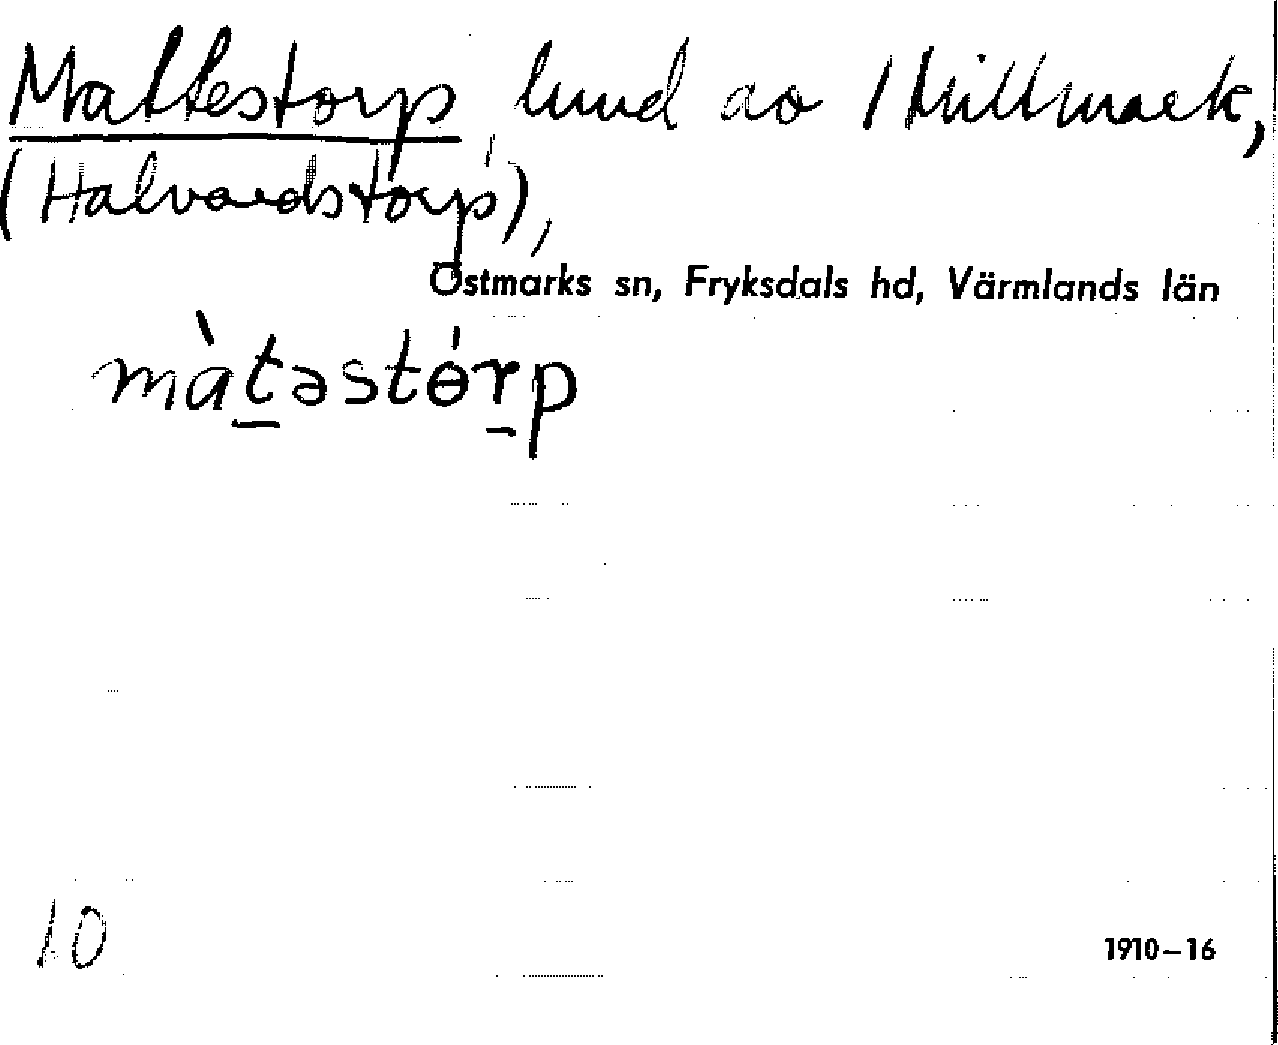 Mattestorp, lund av 1 Millmark,
(Halvardstorp),
Östmarks sn, Fryksdals hd, Värmlands län
màt̲əstɵ́r̲p
10
1910–16